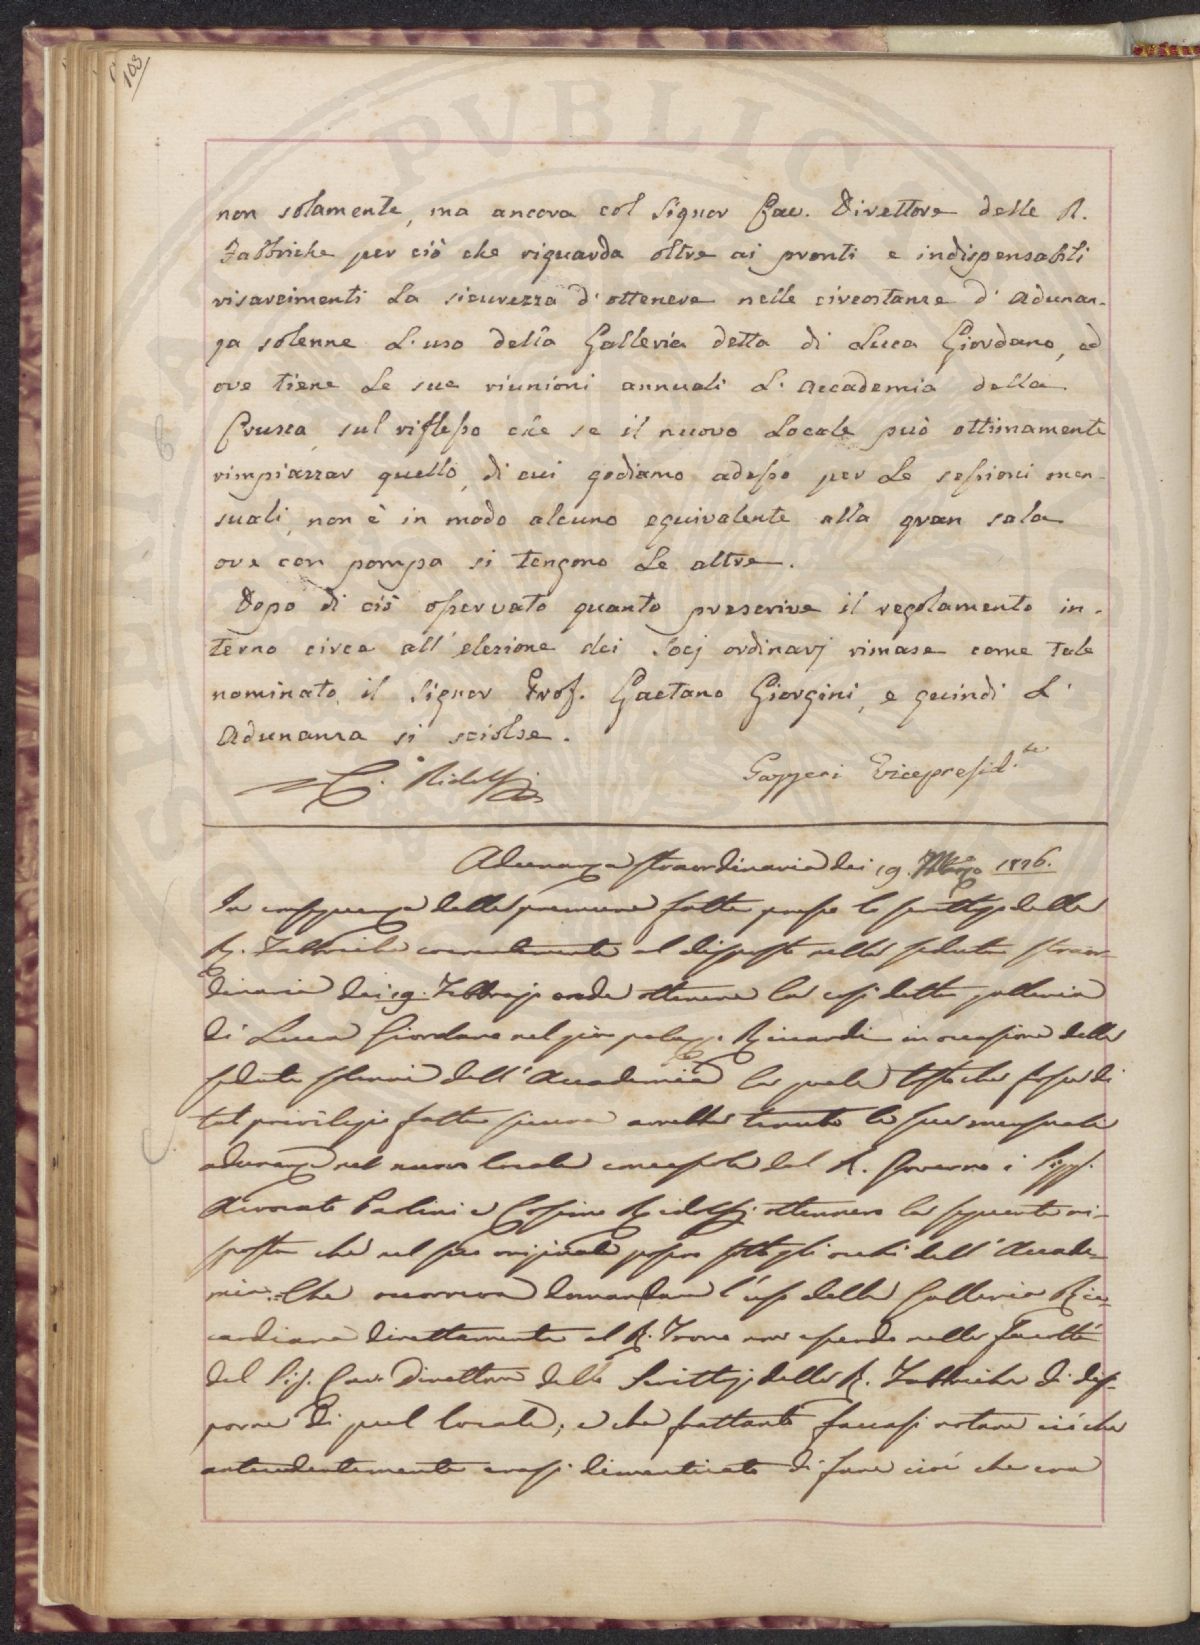 103
non solamente, ma ancora col Signor Cav. Direttore delle R.
Fabbriche per ciò che riguarda oltre ai pronti e indispensabili
risarcimenti la sicurezza d'ottenere nelle circostanze d'adunan-
za solenne l'uso della Galleria detta di Luca Giordano, ed
ove tiene le sue riunioni annuali l'accademia della
Crusca, sul riflesso che se il nuovo locale può ottimamente
rimpiazzar quello, di cui godiamo adesso per le sessioni men-
suali, non è in modo alcuno equivalente alla gran sala
ove con pompa si tengono le altre.
Dopo di ciò osservato quanto prescrive il regolamento in-
terno circa all'elezione dei Socj ordinarj rimase come tale
nominato il Signor Prof. Gaetano Giorgini, e quindi l'
adunanza si sciolse.
C. Ridolfi Gazzeri Vicepresid.te
PVBLICA
Adunanza straordinaria dei 19. Marzo 1826.
In conseguenza delle premure fatte presso lo scrittojo delle
R. Fabbriche coerentemente al disposto nella seduta straor-
dinaria dei 19. Febbrajo onde ottenere la così detta galleria
di Luca Giordano nel già palazzo Riccardi in occasione delle
sedute solenni dell'Accademia la quale tosto che fosse di
tal privilegio fatta sicura avrebbe tenute le sue mensuali
adunanze nel nuovo locale concessole dal R. Governo i Sigg.
Avvocato Paolini e Cosimo Ridolfi ottennero la seguente ri-
sposta che nel suo originale posero sotto gli occhi dell'Accade-
mia. = Che occorreva domandare l'uso della Galleria Ric-
cardiana direttamente al R. Trono non essendo nelle facoltà
del Sig. Cav. Direttore dello Scrittojo delle R. Fabbriche di dis-
porre di quel locale; e che frattanto faceasi notare ciò che
antecedentemente erasi dimenticato di fare cioè che era